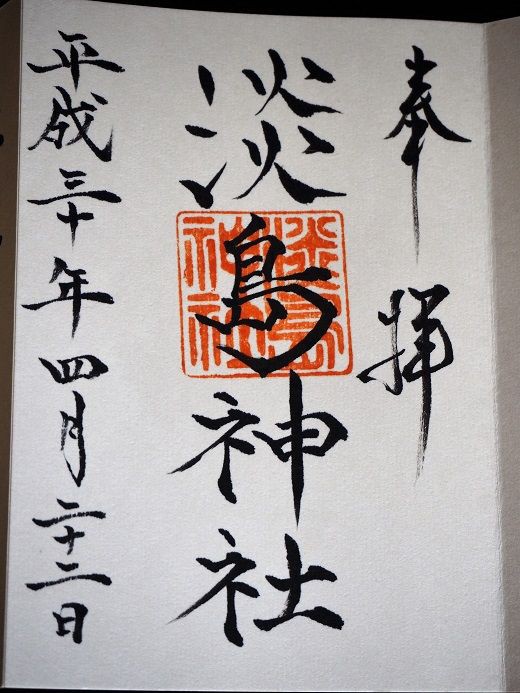 奉拝
淡島神社
淡島神社
平成三十年四月二十二日